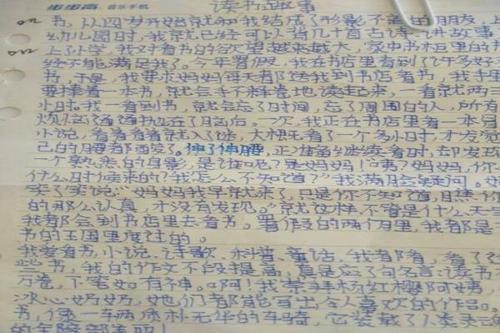 步步高 音乐手机
读书趣事
书，从四岁开始就和我结成了形影不离的朋友，
幼儿园时，我就已经可以背几十首古诗、讲故事
上了小学，我对看书的欲望越来越大，家中书柜里的
经不能满足我了。今年暑假，我在书店里看到了许多好
书，于是，我要求妈妈每天都送我到书店看书，我手
要捧着一本书，就会手不释卷地读起来，一看就两
小时。我一看到书，就会忘了时间，忘了周围的人，所有
烦恼通通抛在了脑后。一次，我正在书店里看一本
小说，看着看着就入了迷，大概看了一个多小时，才发
己的腰都酸了。伸了伸腰，正准备继续看时，却发
一个熟悉的身影，是谁呢？是妈妈！“妈妈，你
什么时候来的？我怎么不知道？”我满脸疑问。
笑了笑说：“妈妈我早就来了，只是你不知道，
的那么认真，才没有发现。”就这样，不管是什么天
我都会到书店里去看书。暑假的两个月里，我都是
书的王国里度过的。
我爱看书，小说、诗歌、童话，我都看，看了
些书，我的作文不断提高，真是应了句名言：读书
万卷，下笔如有神。啊！我崇拜杨红樱阿姨
冰心奶奶，她们都能写出令人喜欢的作品
书，像一车两朴无华的车骑，它装载了人类
的全部